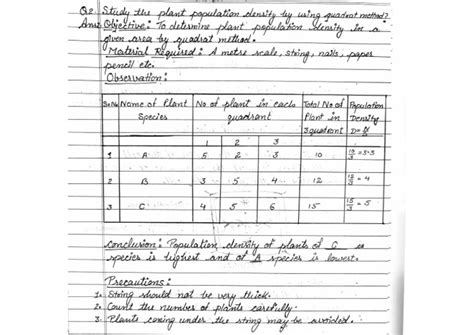 Q2. Study the plant population density by using quadrat method?
Ans: Objective: To determine plant population density in a
given area by quadrat method.
Material Required: A metre scale, string, nails, paper
pencil etc.
Observation:
Sr.No Name of Plant Species No of plant in each quadrant Total No of Plant in 3 quadrant Population Density
1 2 3
1 A 5 2 3 10 = 3.3
2 B 3 5 4 12 = 4
3 C 4 5 6 15 15/3 = 5
Conclusion: Population density of plants of C is
species is highest and of A species is lowest.
Precautions:
1. String should not be very thick.
2. Count the number of plants carefully.
3. Plants coming under the string may be avoided.